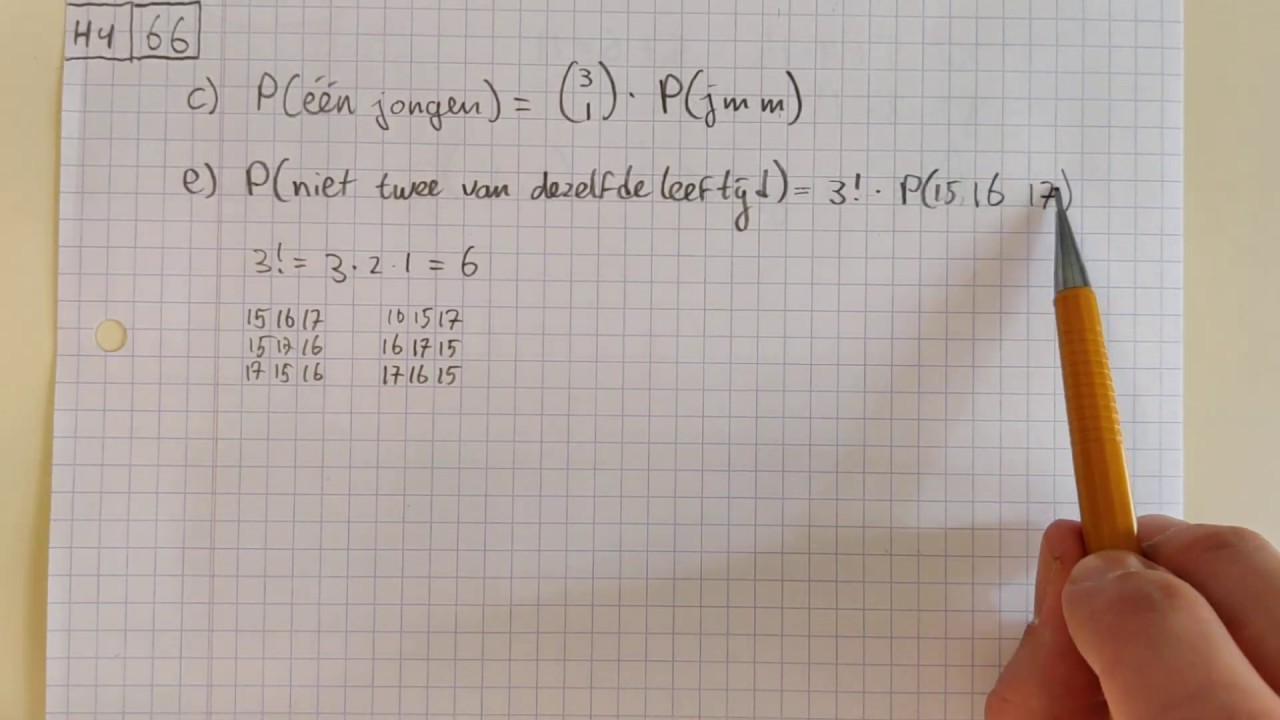 H4 66
c) P(één jongen) = (3 1) · P(j m m)
e) P(niet twee van dezelfde leeftijd) = 3! · P(15 16 17)
3! = 3 · 2 · 1 = 6
15 16 17 16 15 17
15 17 16 16 17 15
17 15 16 17 16 15